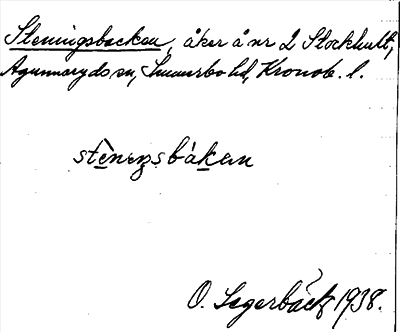 Steningsbackan, åker å nr 2 Stockhult,
Agunnaryds sn, Sunnerbo hd, Kronob. l.
stèneŋsbàkan
O. Segerbäck 1938.